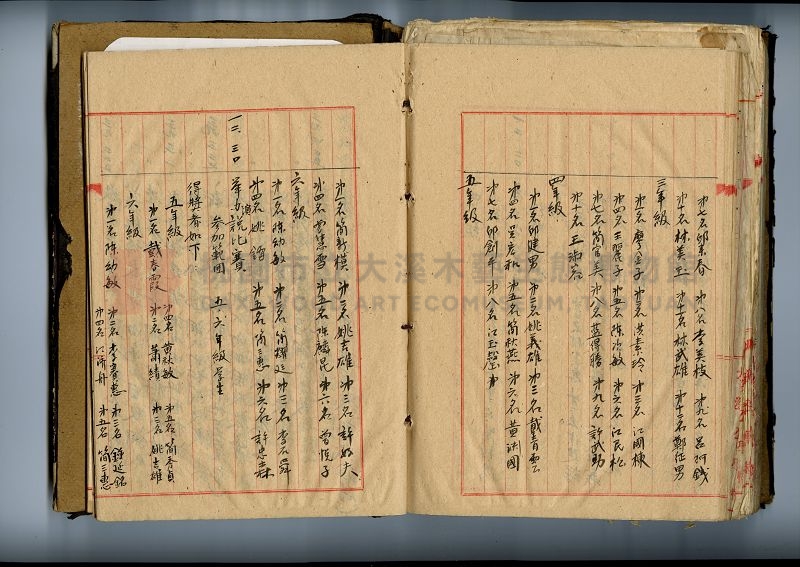 第七名邱素春 第八名李美枝 第九名呂阿錢
第十名林美玉 第十一名林武雄 第十二名鄭征男
三年級
第一名廖金子 第二名洪素玲 第三名江國棟
第四名王翠子 第五名陳次敏 第六名江民松
第七名簡宜美 第八名藍得勝 第九名許武勳
第十名王瑞蓉
四年級
第一名邱健男 第二名姚義雄 第三名戴青雲
第四名吳彦松 第五名簡秋燕 第六名黄洪國
第七名邱創千 第八名江玉
五年級
第一名簡新模 第二名姚吉雄 第三名許 夫
第四名曾黛雪 第五名陳麟昆 第六名曾悦子
六年級
第一名陳幼敏 第二名簡耀廷 第三名李石舜
第四名姚 錦 第五名簡三惠 第六名許忠森
一二、三〇
舉办演説比賽
參加範圍 五、六年級學生
得獎者如下
五年級
第一名戴春霞 第二名葉綉 第三名姚吉雄
第四名黄秋敏 第五名簡秀貞
六年級
第一名陳幼敏 第二名李春惠 第三名鍾延銘
第四名江濟舟 第五名簡三惠